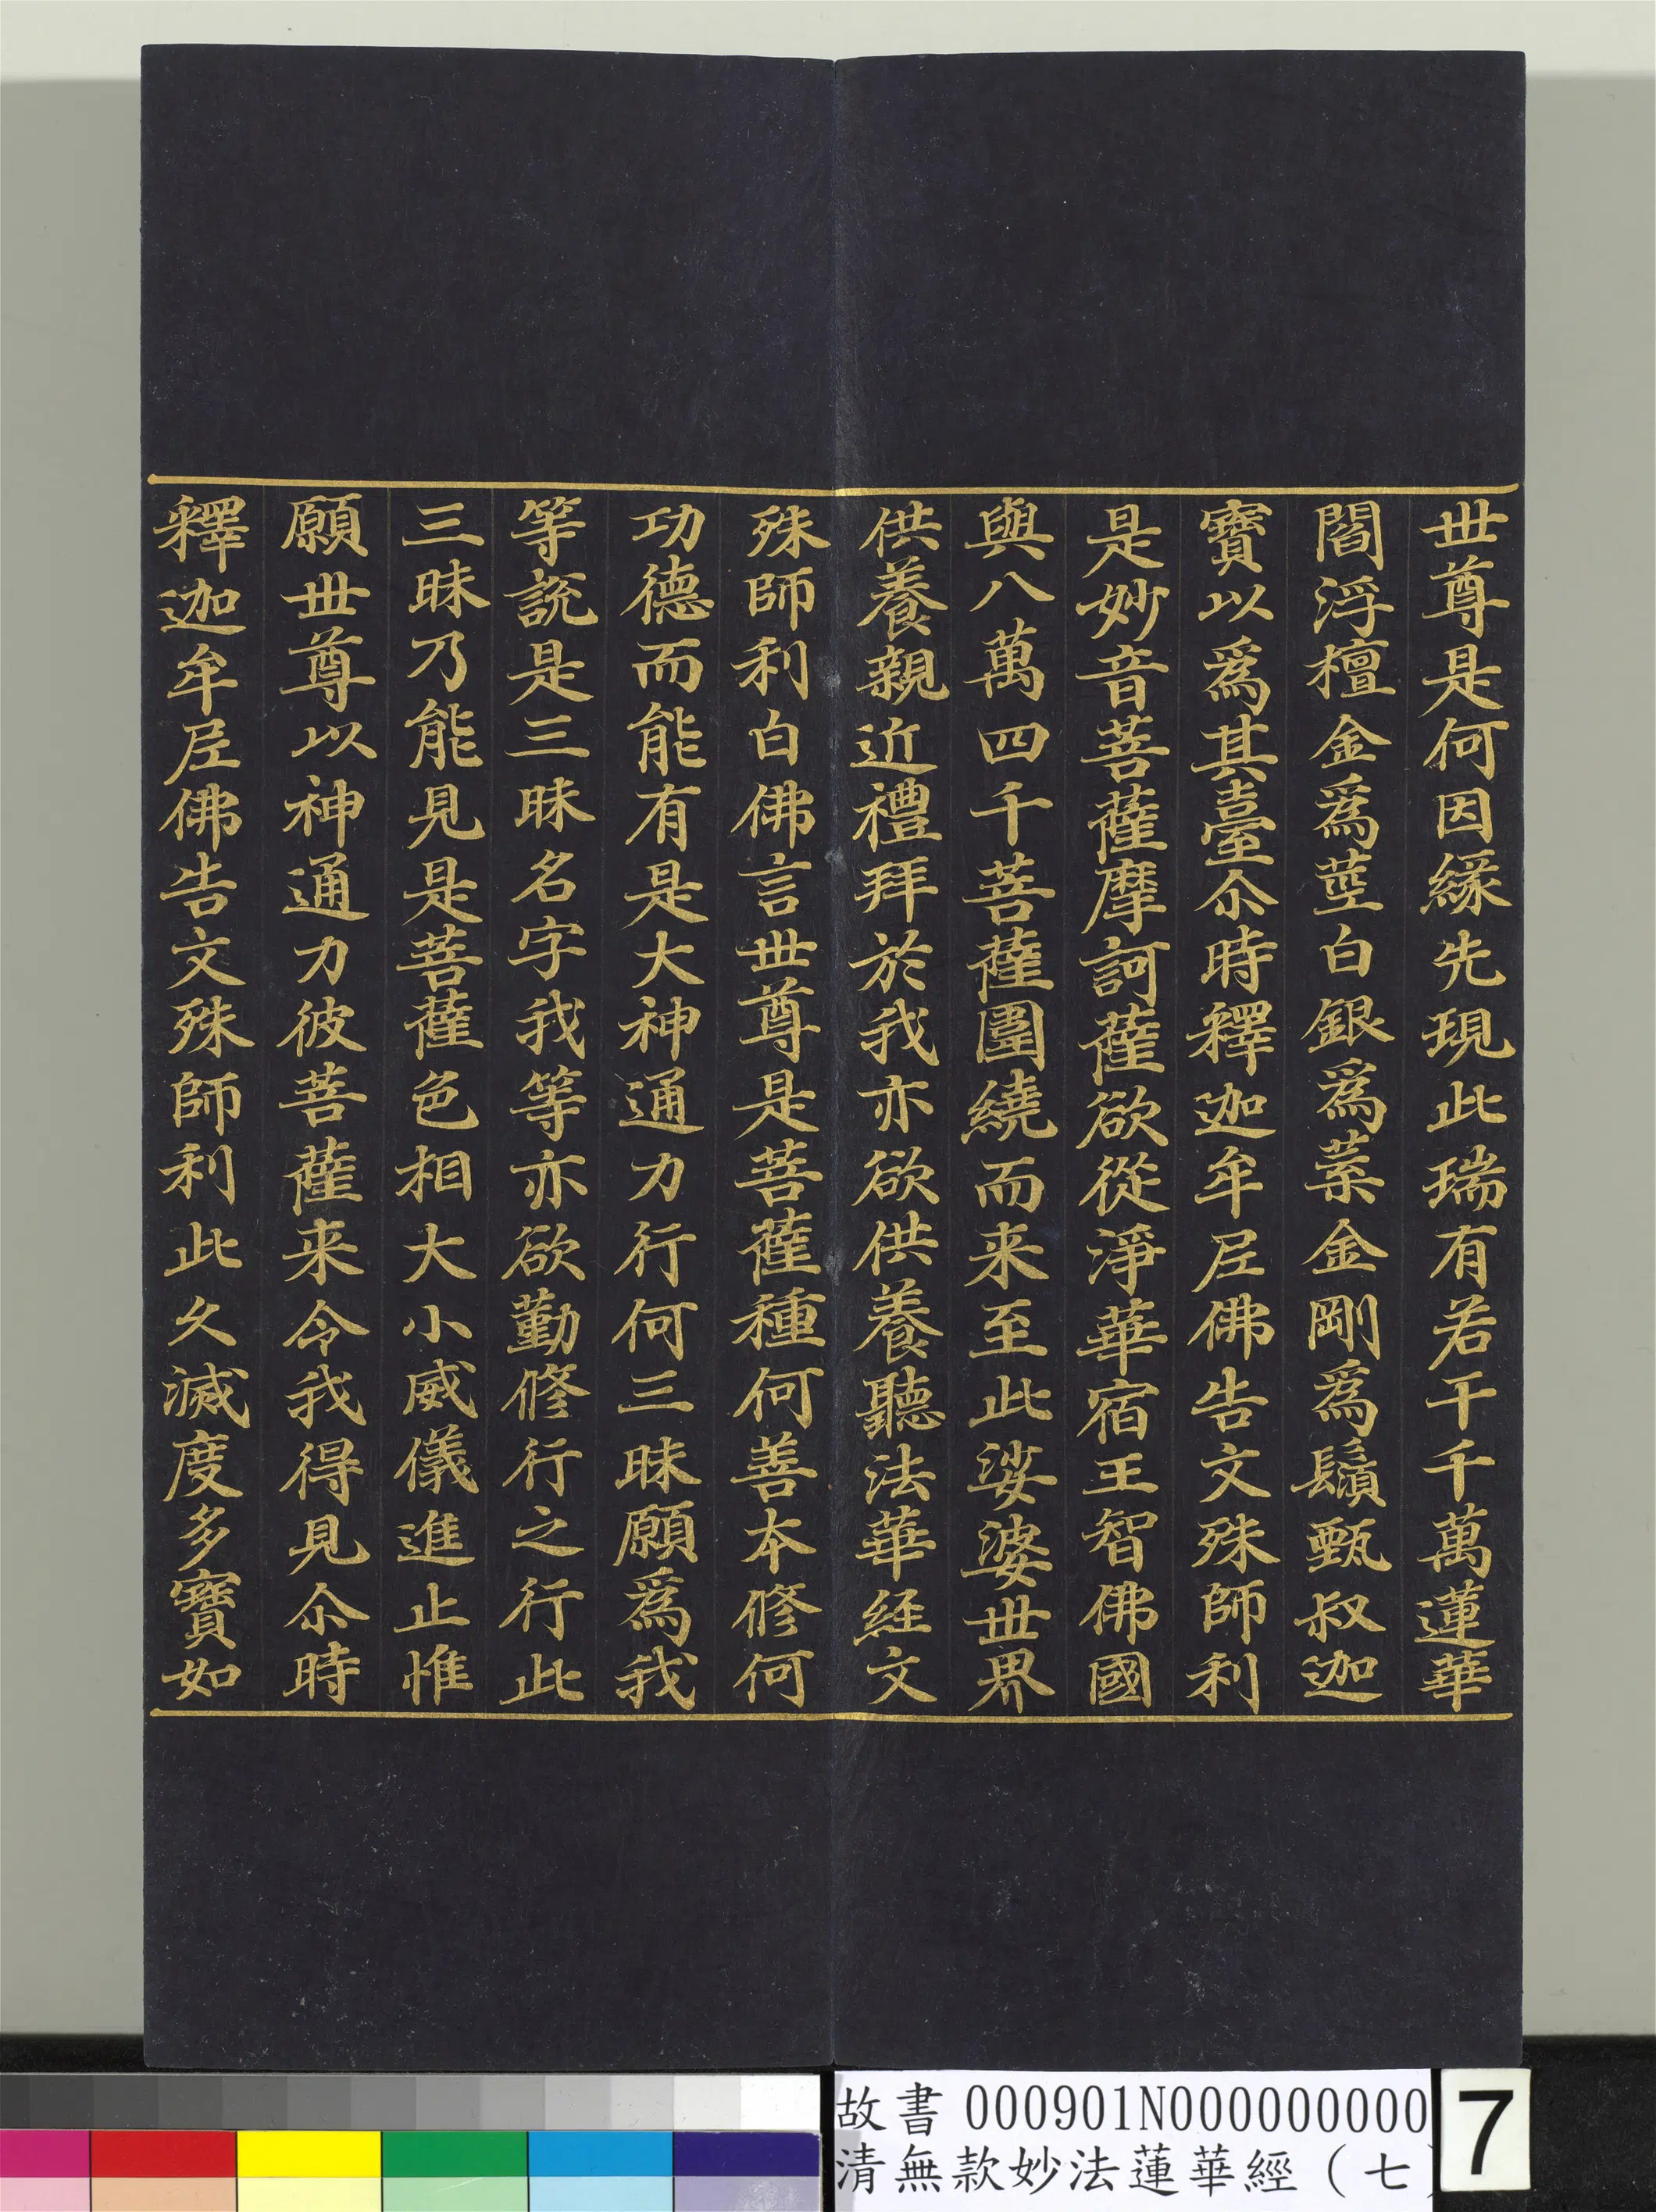 世尊是何因緣先現此瑞有若干千萬蓮華
閻浮檀金爲莖白銀爲葉金剛爲鬚甄叔迦
寶以爲其臺尒時釋迦牟尼佛告文殊師利
是妙音菩薩摩訶薩欲從淨華宿王智佛國
與八萬四千菩薩圍繞而来至此娑婆世界
供養親近禮拜於我亦欲供養聽法華経文
殊師利白佛言世尊是菩薩種何善本修何
功德而能有是大神通力行何三昧願爲我
等說是三昧名字我等亦欲勤修行之行此
三昧乃能見是菩薩色相大小威儀進止惟
願世尊以神通力彼菩薩来令我得見尒時
釋迦牟尼佛告文殊師利此久滅度多寶如
故書 000901N000000000
清無款妙法蓮華經（七
7